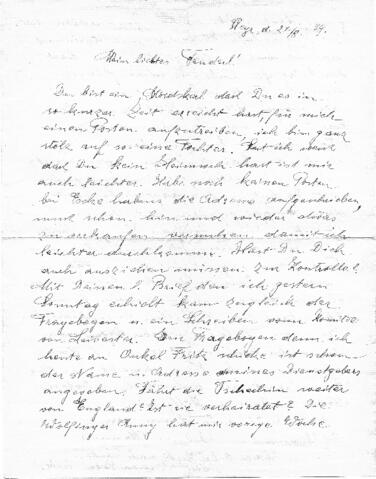 d. 24/ 39.
Mein liebster
Du bist ein dass Du es in
so kurzer Zeit erreicht hast, für mich
einen Posten aufzutreiben, ich bin ganz
stolz auf so eine Tochter. Seit ich weiß
daß Du kein Heimweh hast ist mir
auch leichter. Habe noch keinen Posten
bei Ecke habens die Adresse aufgeschrieben,
muß schon hin und wieder etwas
zu verkaufen versuchen damit ich
leichter durchkomm. Hast Du Dich
auch ausziehen müssen zur Kontrolle?
Mit Deinen l. Brief den ich gestern
Sonntag erhielt kam zugleich der
Fragebogen u. ein Schreiben vom Komitee
von Leicester. Am Fragebogen denn ich
heute an Onkel Fritz schicke ist schon
der Name u. Adresse meines Dienstgebers
angegeben. Fährt die weiter
von England? Ist sie verheiratet? Die
Wolfinger Anny hat mir vorige Woche